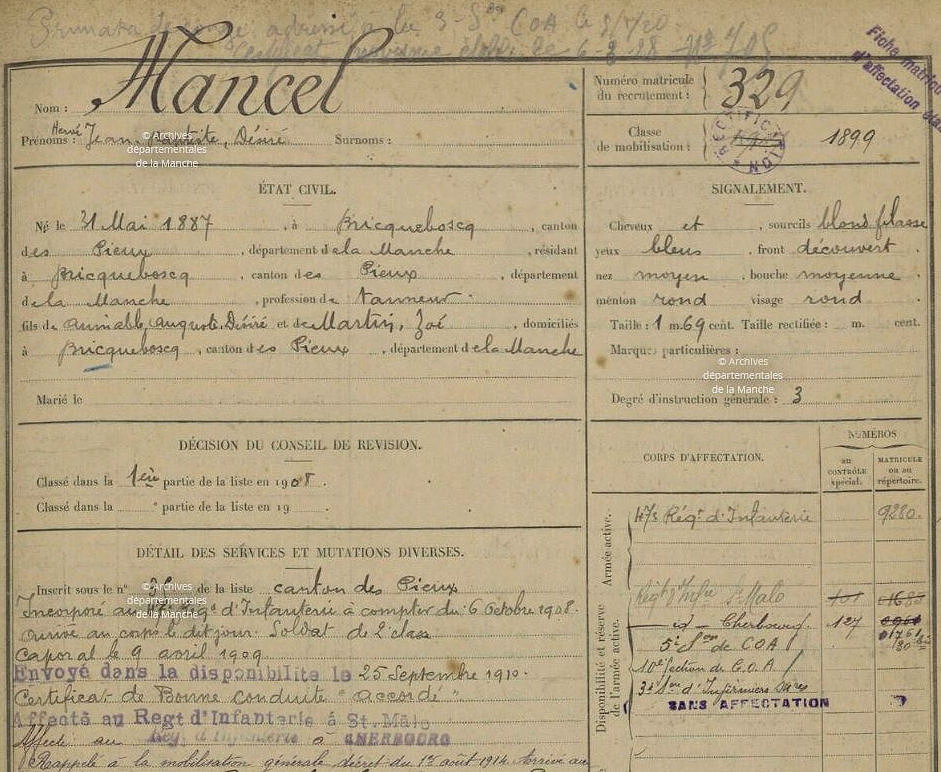 Mancel
Nom :
Prénoms : Hervé Jean-Baptiste, Désiré Surnoms :
© Archives
départementales
de la Manche
Numéro matricule
du recrutement : 329
Classe
de mobilisation : 1899
RECTIFICATION
Fiche matricule
d'affectation
ÉTAT CIVIL.
Né le 31 Mai 1887, à Bricqueboscq, canton
des Pieux, département de la Manche, résidant
à Bricqueboscq, canton des Pieux, département
de la Manche, profession de tanneur.
fils de Aimable, Auguste, Désiré et de Martin, Zoé, domiciliés
à Bricqueboscq, canton des Pieux, département de la Manche
Marié le
SIGNALEMENT.
Cheveux et, sourcils blond filasse
yeux bleus, front découvert.
nez moyen, bouche moyenne
menton rond visage rond
Taille : 1 m. 69 cent. Taille rectifiée : m. cent.
Marques particulières :
© Archives
départementales
de la Manche
Degré d'instruction générale : 3
DÉCISION DU CONSEIL DE REVISION.
Classé dans la 1ère partie de la liste en 1908.
Classé dans la e partie de la liste en 19 .
DÉTAIL DES SERVICES ET MUTATIONS DIVERSES.
Inscrit sous le n° de la liste canton des Pieux
© Archives
départementales
de la Manche
Incorporé au Régt d'Infanterie à compter du 6 Octobre 1908.
Arrivé au corps le dit jour. Soldat de 2e classe
Caporal le 9 avril 1909
Envoyé dans la disponibilité le 25 Septembre 1910.
Certificat de Bonne conduite "accordé"
Affecté au Regt d'Infanterie à St. Malo
Affecté au Rég. d'Infanterie à CHERBOURG
Rappelé à la mobilisation générale décret du 1er août 1914. Arrivé au
CORPS D'AFFECTATION.
NUMÉROS
au
CONTRÔLE
spécial.
MATRICULE
ou au
répertoire.
Armée active.
47e Régt d'Infanterie 9280.
Disponibilité et réserve
de l'armée active.
Régt d'Infie St Malo
— id — Cherbourg 127
5e Son de COA
10e Section de C.O.A
3e Son d'Infirmiers
SANS AFFECTATION